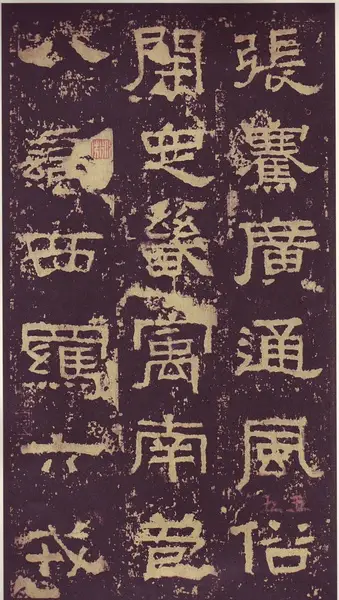 張騫廣通風俗
開定畿寓南苞
八蠻西羈六戎